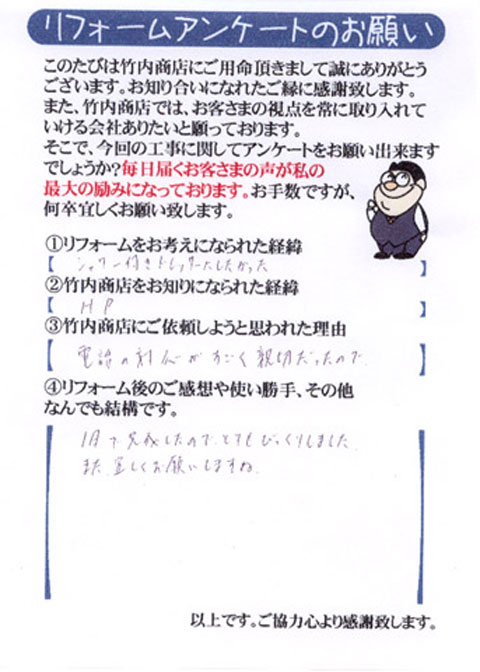 リフォームアンケートのお願い
このたびは竹内商店にご用命頂きまして誠にありがとう
ございます。お知り合いになれたご縁に感謝致します。
また、竹内商店では、お客さまの視点を常に取り入れて
いける会社ありたいと願っております。
そこで、今回の工事に関してアンケートをお願い出来ます
でしょうか?毎日届くお客さまの声が私の
最大の励みになっております。お手数ですが、
何卒宜しくお願い致します。
①リフォームをお考えになられた経緯
【シャワー付きドレッサーにしたかった】
②竹内商店をお知りになられた経緯
【HP】
③竹内商店にご依頼しようと思われた理由
【電話の対応がすごく親切だったので】
④リフォーム後のご感想や使い勝手、その他
なんでも結構です。
1日で完成したのでとてもびっくりしました
また宜しくお願いしますね
以上です。ご協力心より感謝致します。